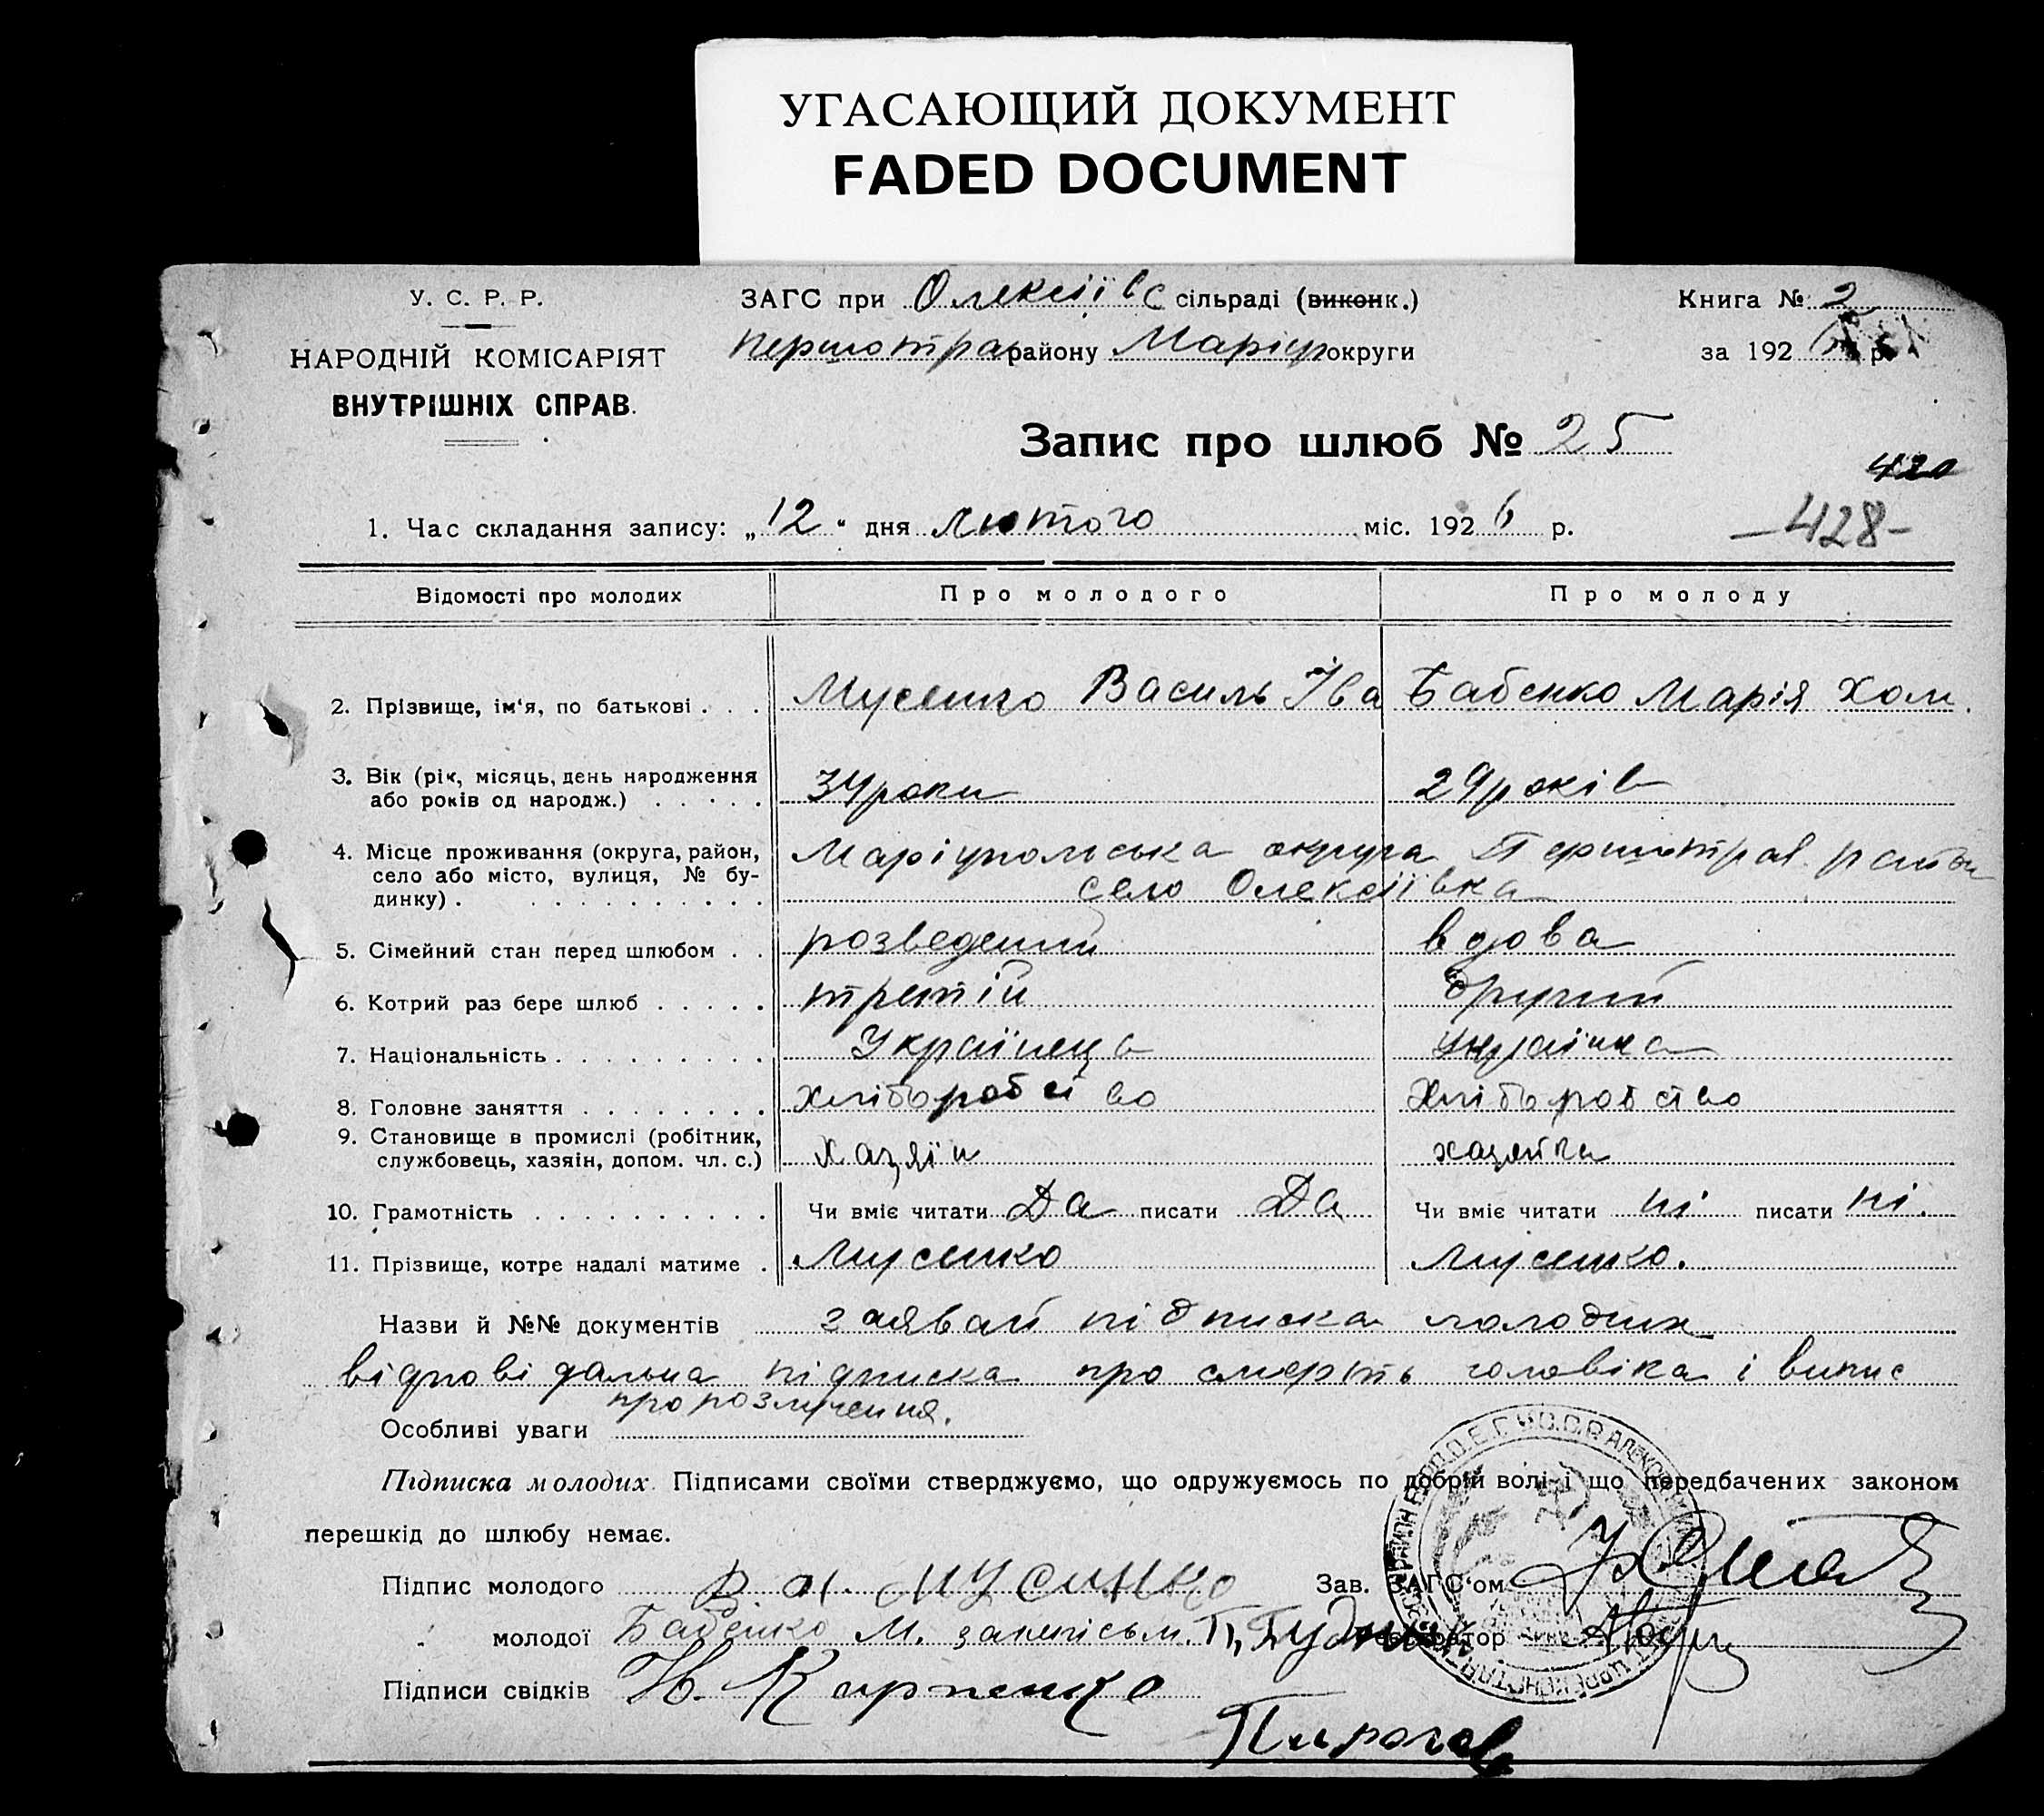 УГАСАЮЩИЙ ДОКУМЕНТ
FADED DOCUMENT
У. С. Р. Р.
НАРОДНІЙ КОМІСАРІЯТ
ВНУТРІШНІХ СПРАВ.
ЗАГС при Олексіївс сільраді (виконк.)
Першотрав району Маріуп округи
Книга № 2
за 192 р.
Запис про шлюб № 25
420
1. Час складання запису: „12" дня лютого міс. 1926 р.
-428-
Відомості про молодих Про молодого Про молоду
2. Прізвище, ім'я, по батькові . . . Мусенко Василь Іва Бабенко Марія Хом.
3. Вік (рік, місяць, день народження
або років од народж.) . . . . . 34 роки 29 років
4. Місце проживання (округа, район, Маріупольська округа Першотрав. район
село або місто, вулиця, № бу- село Олексіївка
динку) . . . . . . . . . . .
5. Сімейний стан перед шлюбом . . розведений вдова
6. Котрий раз бере шлюб . . . . . третій другий
7. Національність . . . . . . . . . Українець Українка
8. Головне заняття . . . . . . . . хліборобство Хліборобство
9. Становище в промислі (робітник,
службовець, хазяїн, допом. чл. с.) Хазяїн хазяйка
10. Грамотність . . . . . . . . . . Чи вміє читати Да писати Да Чи вміє читати ні писати ні.
11. Прізвище, котре надалі матиме . Мусенко Мусенко.
Назви й №№ документів заява й підписка молодих
відповідальна підписка про смерть чоловіка і випис
про розлучення.
Особливі уваги
Підписка молодих. Підписами своїми стверджуємо, що одружуємось по добрій волі і що передбачених законом
перешкід до шлюбу немає.
Підпис молодого В. И. Мусинко Зав. ЗАГС'ом
" молодої Бабенко М. Реєстратор
Підписи свідків Н. Карпенко
Пирогов